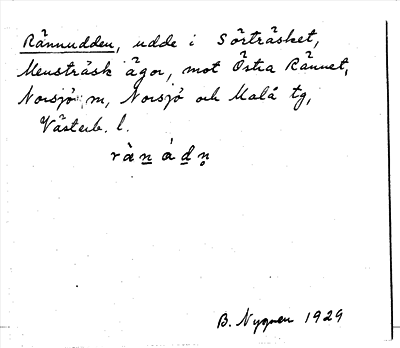 Rännudden, udde i Sörträsket,
Mensträsk ägor, mot Östra Rännet,
Norsjö sn, Norsjö och Malå tg,
Västerb. l.
rànádn
B. Nygren 1929